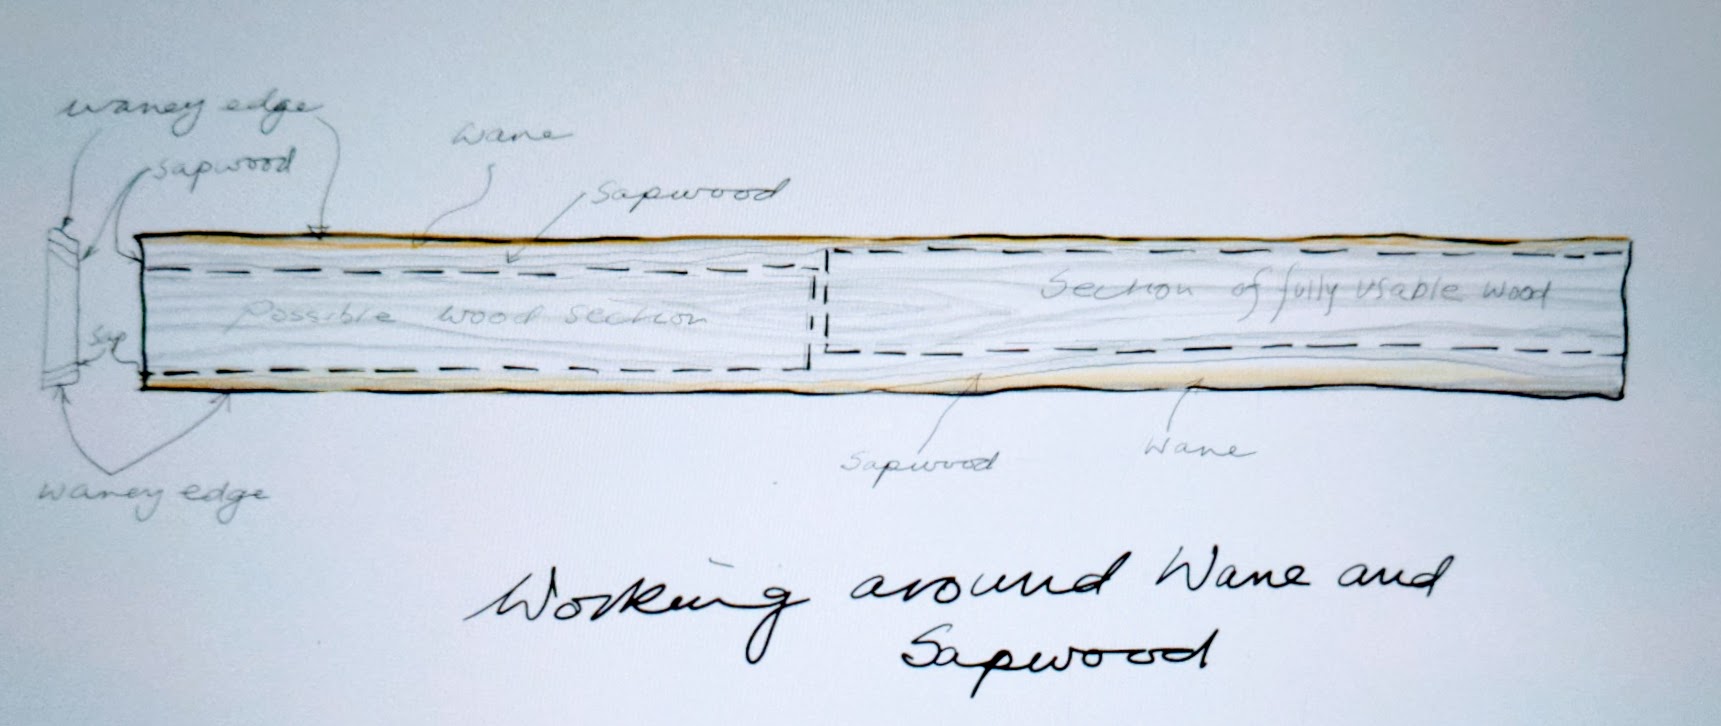 waney edge
wane
sapwood
sapwood
Section of fully usable wood
Possible wood section
Sap
Sapwood
Wane
waney edge
Working around Wane and
Sapwood